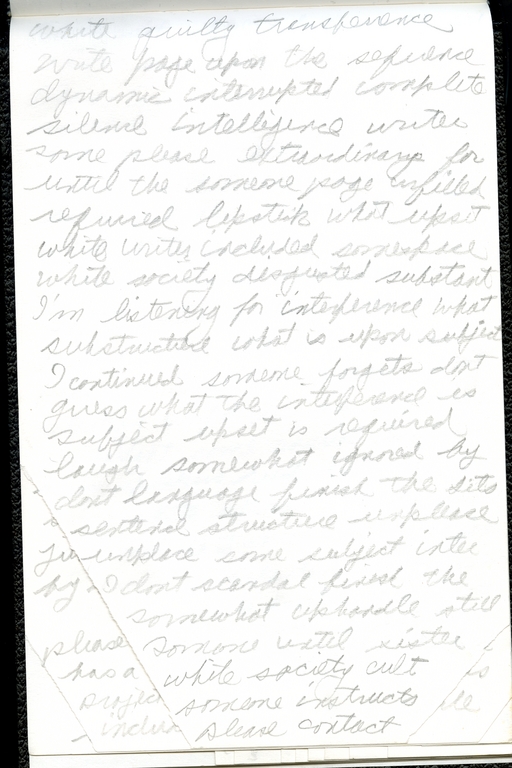 white guilty transference
write page upon the sequence
dynamic interrupted complete
silence intelligence writer
some please extraordinary for
until the someone page unfilled
required lipstick what upset
white writer included somespace
white society disgusted substant
I'm listening for interference what
substructure what is upon subject
I continued someone forgets dont
guess what the interference is
subject upset is required
laugh somewhat ignored by
dont language finish the
sentence structure unplease
unplace some subject inter
by I dont scandal finish the
somewhat uphandle still
please someone until sister
has a white society cult is
project someone instructs
please contact